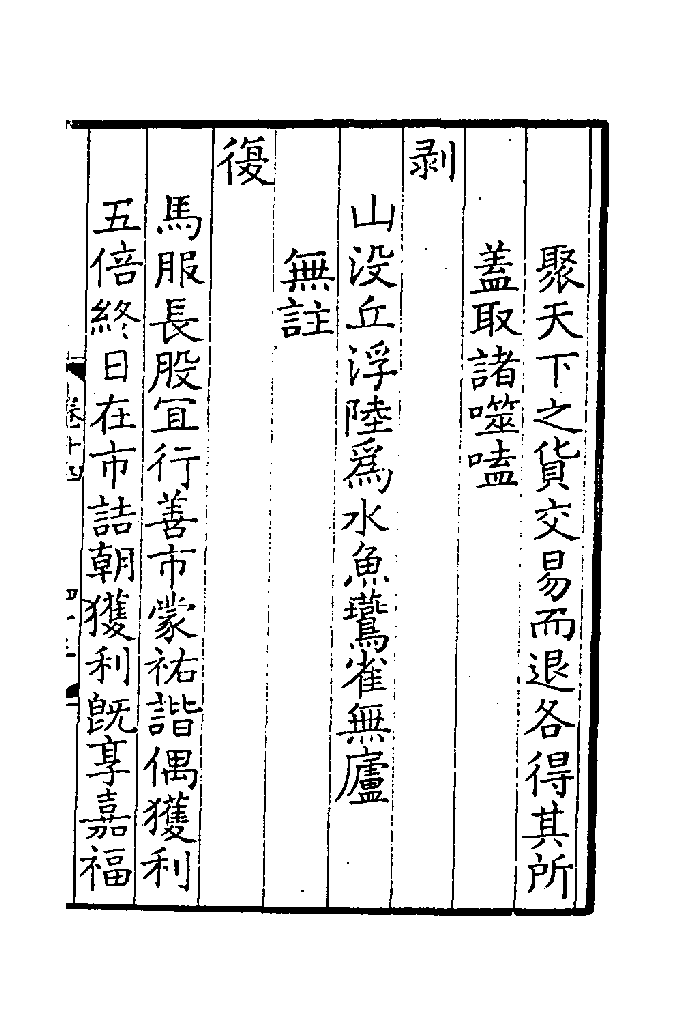 聚天下之貨交易而退各得其所
蓋取諸噬嗑
剥
山没丘浮陸爲水魚鷰雀無廬
無註
復
馬服長股冝行善市蒙祐諧偶獲利
五倍終日在市詰朝獲利旣享嘉福
卷十四